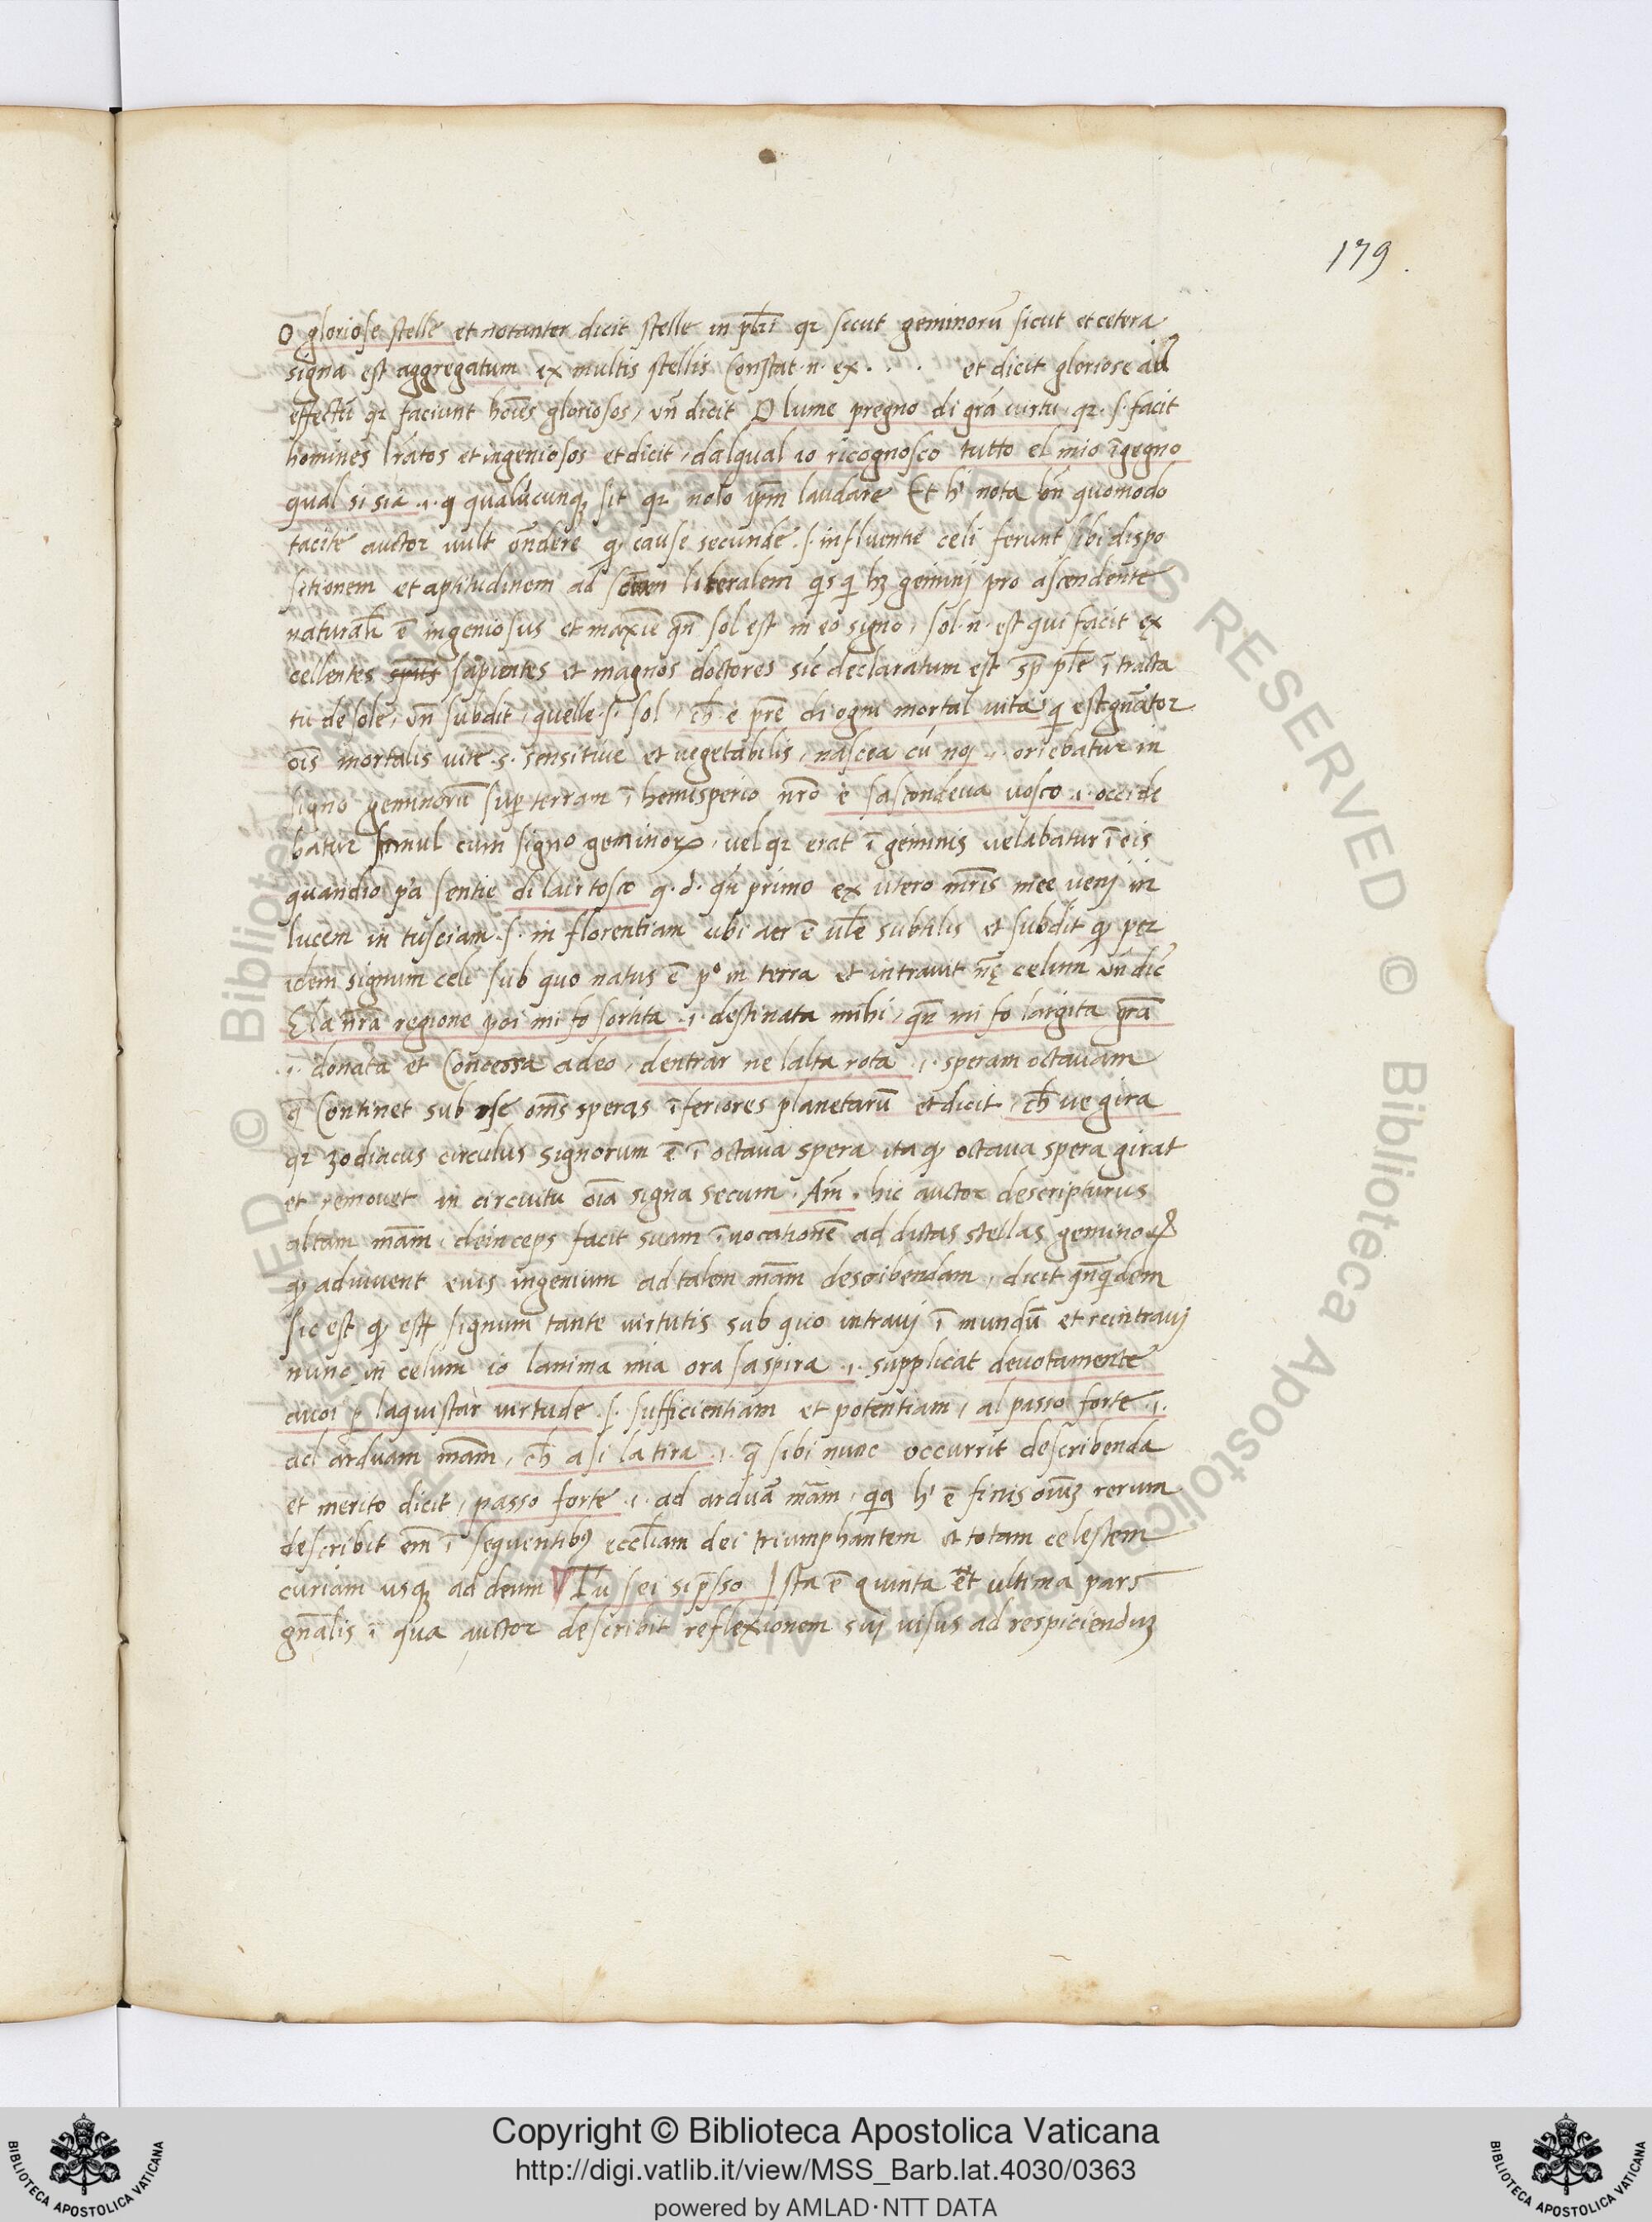 179.
O gloriose stelle et notanter dicit stelle in plr̃i qr sicut geminorũ sicut et cetera
signa est aggregatum ex multis stellis Constat .n. ex . . . et dicit gloriose ab
effectũ qr faciunt hoĩes gloriosos, vñ dicit O lume pregno di grã virtu, qr .s. facit
homines lr̃atos et ingeniosos et dicit, dalqual io ricognosco tutto el mio ĩgegno
qual si sia .i. qualiscunq; sit qr nolo ip̃m laudare Et h' nota bñ quomodo
tacite auctor uult oñdere ꝙ cause secunde .s. influentie celi ferunt sibi dispo
sitionem et aptitudinem ad sciam liberalem qr̃ q̃ hȝ geminj pro ascendente
naturalr̃ ẽ ingeniosus et maxĩe qñ sol est in eo signo, sol .n. est qui facit ex
cellentes sapientes et magnos doctores sic declaratum est sp̃ ĩ tracta
tu de sole, vñ subdit, quelle .s. sol, ch̃ e pr̃e di ogni mortal uita q̃ est gñator
ois̃ mortalis vite .s. sensitiue et vegetabilis, nascea cũ .i. oriebatur in
signo geminorũ suꝑ terram ĩ hemisperio nr̃o e sascondeua uosco .i. occide
batur simul cum signo geminoꝝ, vel qr erat ĩ geminis uelabatur ĩ eis
quandio p'a sentie di lair tosco q.d. qñ primo ex utero mr̃is mee venj in
lucem in tusciam .s. in florentiam ubi aer ẽ subtilis et subdit ꝙ per
idem signum celi sub quo natus ẽ p.º in terra et intrauit celum vñ dic̃
E la ur̃a regione poi mi fo sortita .i. destinata mihi, qñ mi fo largita grã
.i. donata et Concessa a deo, dentrar ne lalta rota .i. speram octauam
q̃ Continet sub se om̃s speras ĩferiores planetarũ et dicit, ch̃ ve gira
qr zodiacus circulus signorum ẽ ĩ octaua spera ita ꝙ octaua spera girat
et remouet in circuitu oĩa signa secum. Am̃. hic auctor descripturus
altam mãm, deinceps facit suam ĩuocationẽ ad dictas stellas geminoꝝ
ꝙ adiuuent eius ingenium ad talem mãm describendam, dicit qñquidem
sic est ꝙ est signum tante virtutis sub quo intrauj ĩ mundũ et reintrauj
nunc in celum io lanima mia ora saspira .i. supplicat deuotamente
auoi ꝑ laquistar virtude .s. sufficientiam et potentiam, al passo forte .i.
ad arduam mãm, ch̃ a si la tira .i. q̃ sibi nunc occurrit describenda
et merito dicit, passo forte .i. ad arduã mãm, qa h' ẽ finis oiũȝ rerum
describit em̃ ĩ sequentibꝰ eccl̃iam dei triumphantem et totam celestem
curiam usq; ad deum Tu sei si pr̃sso Ista ẽ quinta et ultima pars
gñalis ĩ qua auctor describit reflexionem suj uisus ad respiciendũȝ
Copyright © Biblioteca Apostolica Vaticana
http://digi.vatlib.it/view/MSS_Barb.lat.4030/0363
powered by AMLAD·NTT DATA